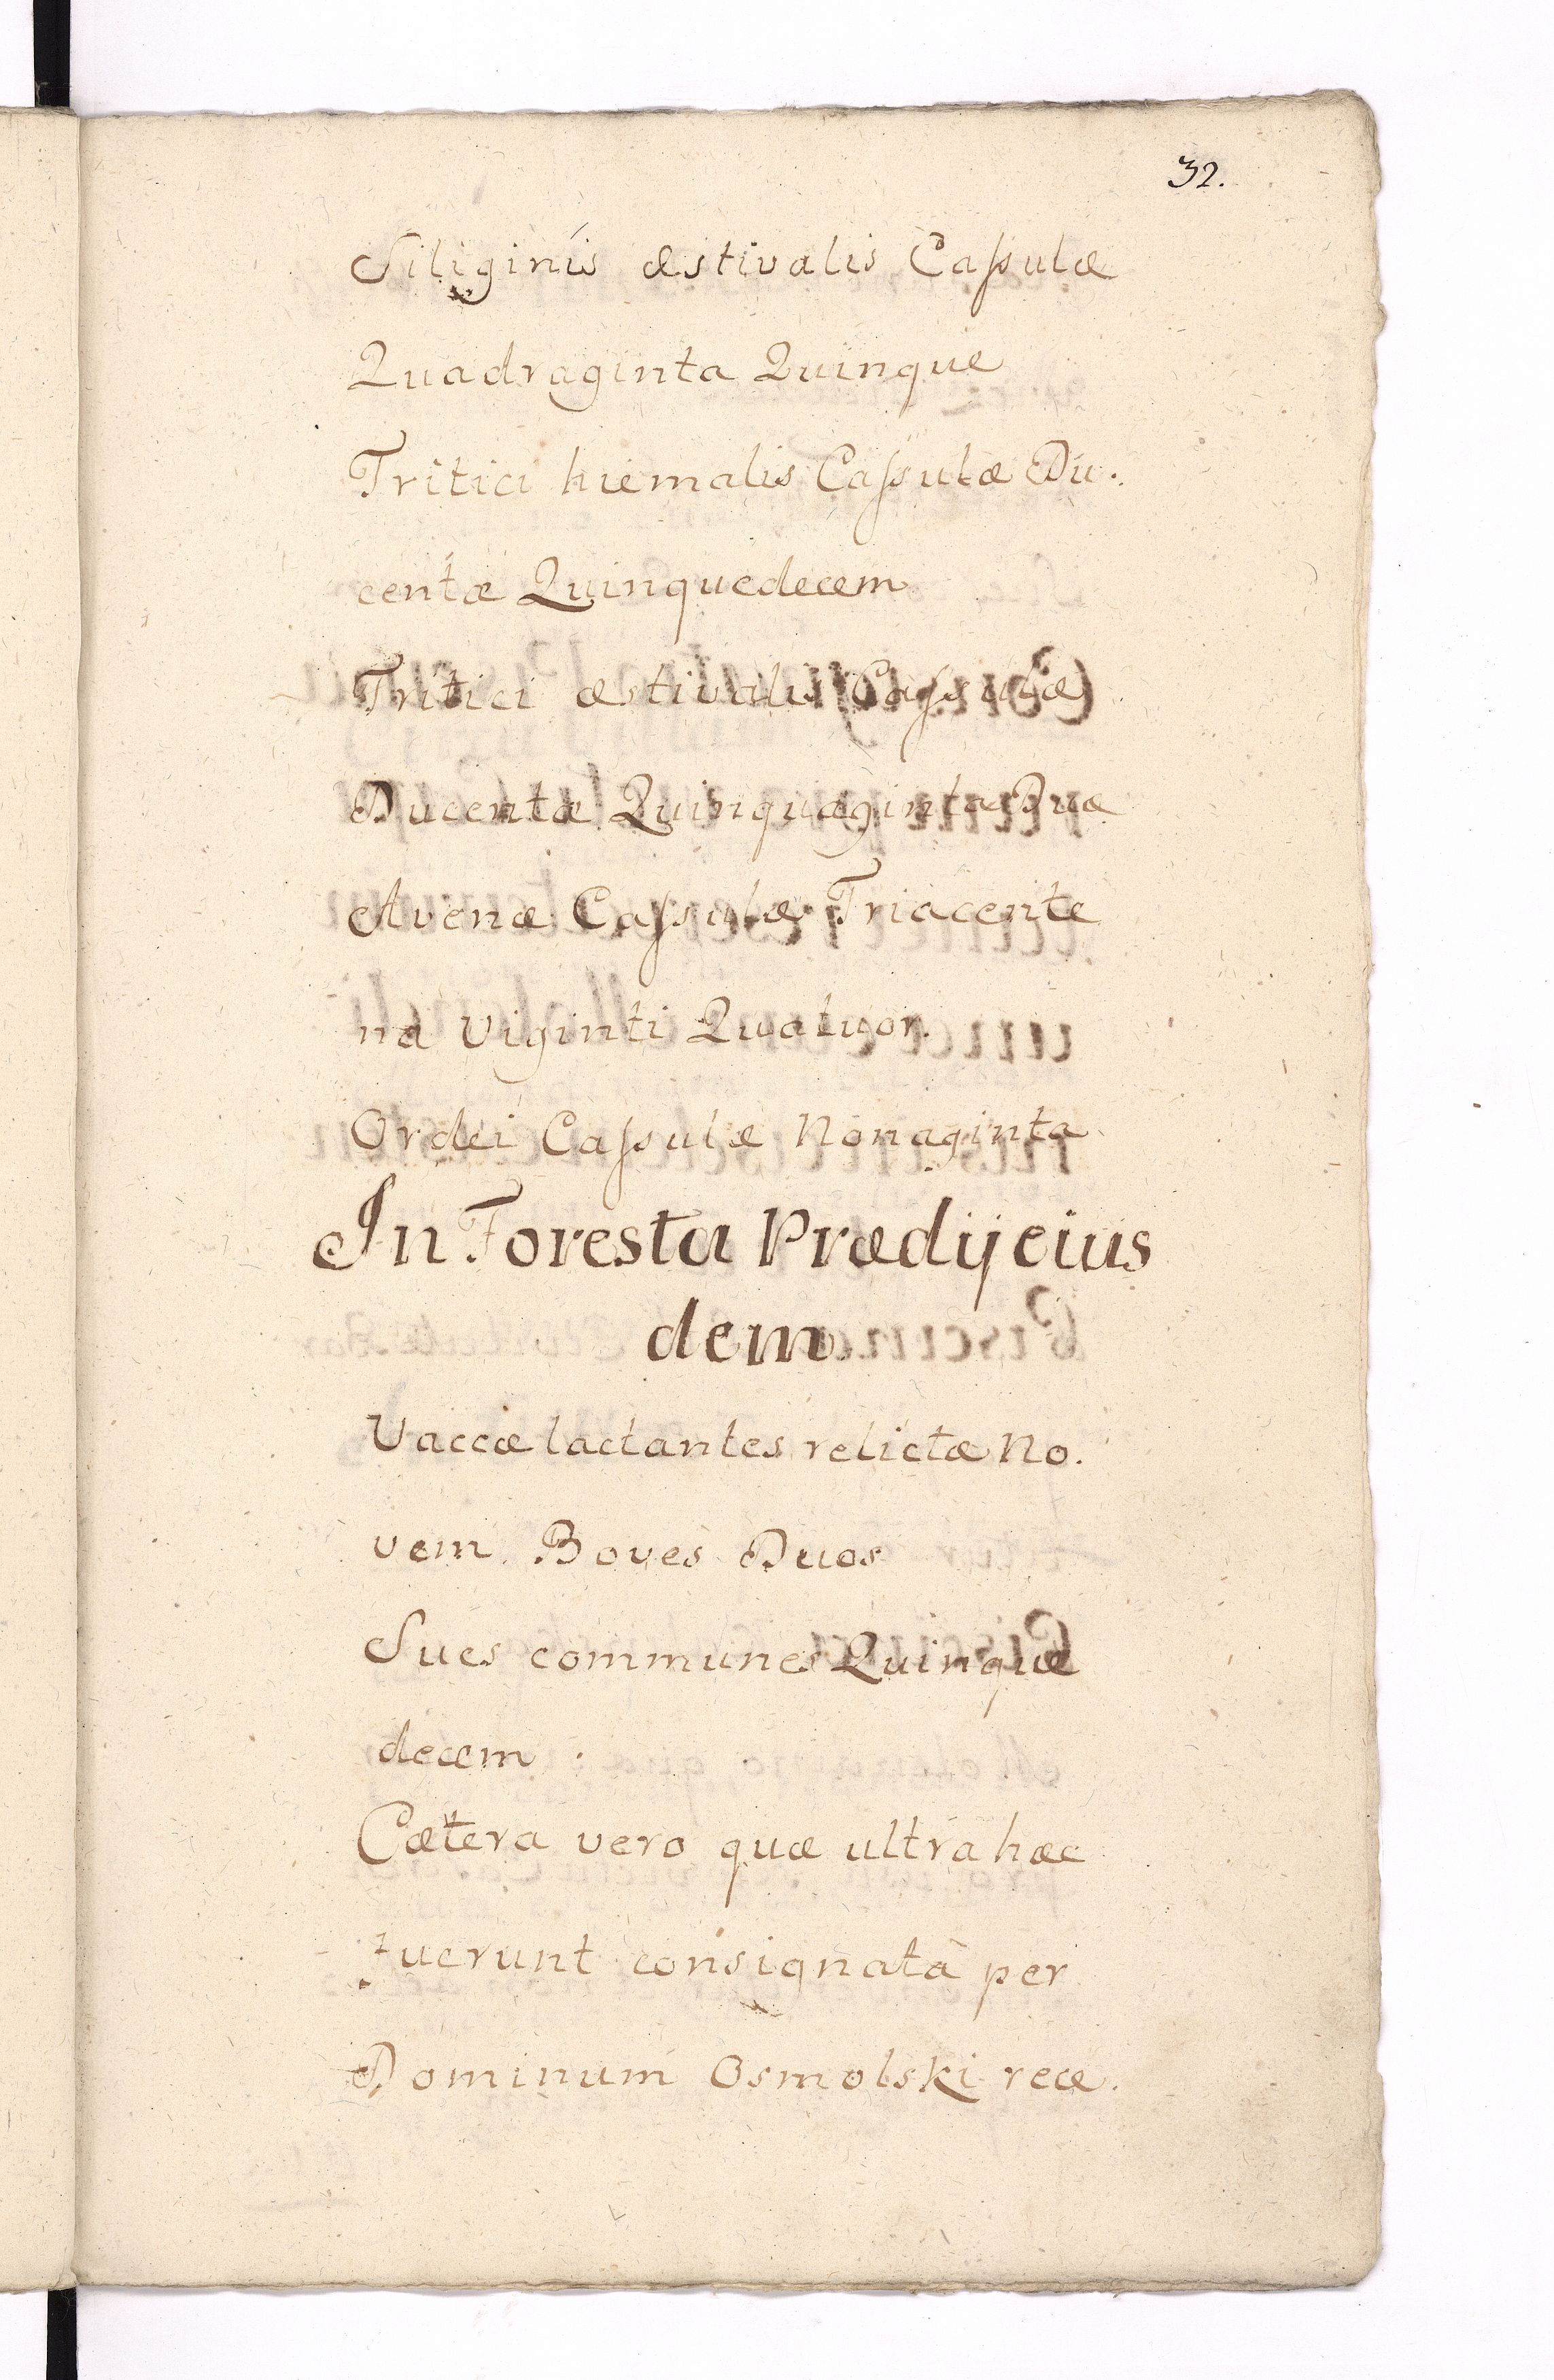 32.
Siliginis æstivalis Caſsulæ
Quadraginta Quinque
Tritici hiemalis Caſsulæ Du.
centæ Quinquedecem
Tritici æstivalis Caſsulæ
Ducentæ Quinquaginta Duæ
Avenæ Caſsulæ Triacente
na Viginti Quatuor.
Ordei Caſsulæ Nonaginta
In Foresta Prædij eius
dem
Vaccæ lactantes relictæ No.
vem. Boves Duos
Sues communes Quinque
decem.
Cætera vero quæ ultra hæc
fuerunt consignata per
Dominum Osmolski rece.